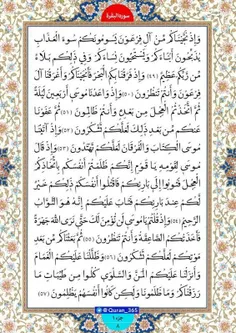 سورة البقرة
وَإِذْ نَجَّيْنَاكُمْ مِنْ آلِ فِرْعَوْنَ يَسُومُونَكُمْ سُوءَ الْعَذَابِ
يُذَبِّحُونَ أَبْنَاءَكُمْ وَيَسْتَحْيُونَ نِسَاءَكُمْ وَفِي ذَٰلِكُمْ بَلَاءٌ
مِنْ رَبِّكُمْ عَظِيمٌ (٤٩) وَإِذْ فَرَقْنَا بِكُمُ الْبَحْرَ فَأَنْجَيْنَاكُمْ وَأَغْرَقْنَا آلَ
فِرْعَوْنَ وَأَنْتُمْ تَنْظُرُونَ (٥٠) وَإِذْ وَاعَدْنَا مُوسَىٰ أَرْبَعِينَ لَيْلَةً
ثُمَّ اتَّخَذْتُمُ الْعِجْلَ مِنْ بَعْدِهِ وَأَنْتُمْ ظَالِمُونَ (٥١) ثُمَّ عَفَوْنَا
عَنْكُمْ مِنْ بَعْدِ ذَٰلِكَ لَعَلَّكُمْ تَشْكُرُونَ (٥٢) وَإِذْ آتَيْنَا
مُوسَى الْكِتَابَ وَالْفُرْقَانَ لَعَلَّكُمْ تَهْتَدُونَ (٥٣) وَإِذْ قَالَ
مُوسَىٰ لِقَوْمِهِ يَا قَوْمِ إِنَّكُمْ ظَلَمْتُمْ أَنْفُسَكُمْ بِاتِّخَاذِكُمُ
الْعِجْلَ فَتُوبُوا إِلَىٰ بَارِئِكُمْ فَاقْتُلُوا أَنْفُسَكُمْ ذَٰلِكُمْ خَيْرٌ
لَكُمْ عِنْدَ بَارِئِكُمْ فَتَابَ عَلَيْكُمْ إِنَّهُ هُوَ التَّوَّابُ
الرَّحِيمُ (٥٤) وَإِذْ قُلْتُمْ يَا مُوسَىٰ لَنْ نُؤْمِنَ لَكَ حَتَّىٰ نَرَى اللَّهَ جَهْرَةً
فَأَخَذَتْكُمُ الصَّاعِقَةُ وَأَنْتُمْ تَنْظُرُونَ (٥٥) ثُمَّ بَعَثْنَاكُمْ مِنْ بَعْدِ
مَوْتِكُمْ لَعَلَّكُمْ تَشْكُرُونَ (٥٦) وَظَلَّلْنَا عَلَيْكُمُ الْغَمَامَ
وَأَنْزَلْنَا عَلَيْكُمُ الْمَنَّ وَالسَّلْوَىٰ كُلُوا مِنْ طَيِّبَاتِ مَا
رَزَقْنَاكُمْ وَمَا ظَلَمُونَا وَلَٰكِنْ كَانُوا أَنْفُسَهُمْ يَظْلِمُونَ (٥٧)
جزء ١
٨
@Quran_365